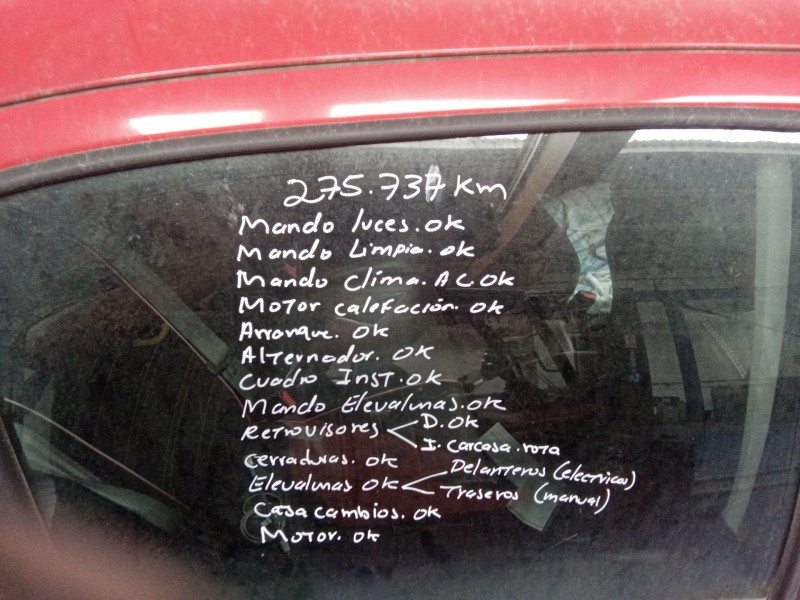 275.737 Km
Mando luces. OK
Mando Limpia. OK
Mando Clima. A C. OK
Motor calefación. OK
Arranque. OK
Alternador. OK
Cuadro Inst. OK
Mando Elevalunas. OK
Retrovisores D. OK
I. Carcasa. rota
Cerraduras. OK
Elevalunas OK Delanteros (electricos)
Traseros (manual)
Casa cambios. OK
Motor. OK